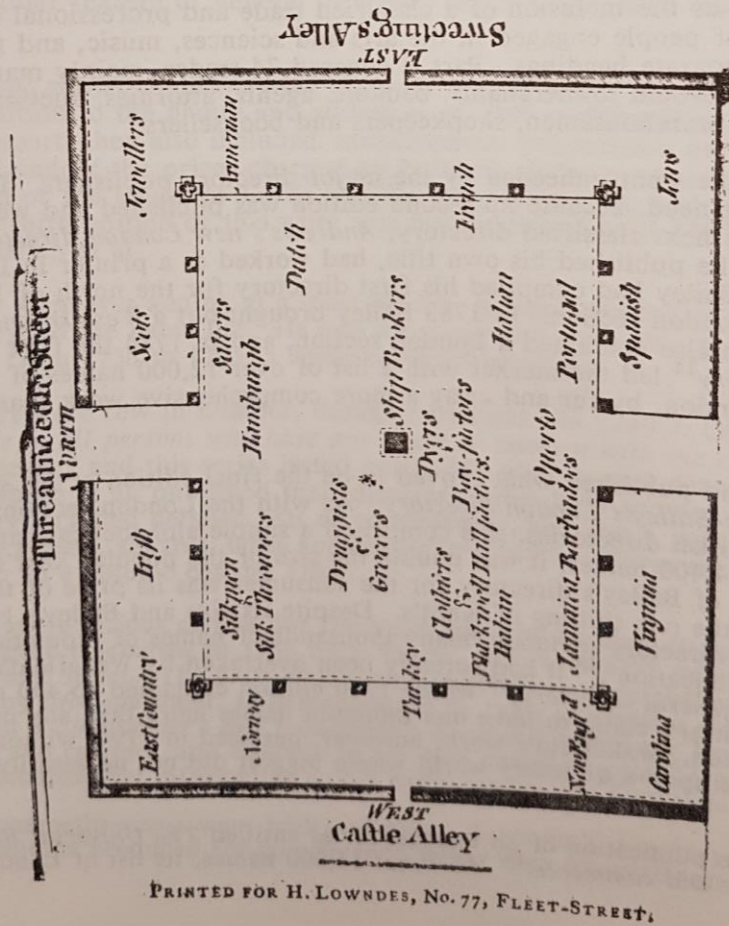 Sweeting's Alley
EAST
Threadneedle Street
NORTH
Jewellers
Armenian
Jews
Scots
Salters
Dutch
French
Hamburgh
Ship Brokers
Italian
Portugal
Spanish
Irish
Silkmen
&
Silk Throwers
Druggists
&
Grocers
Dyers
Clothiers
&
Blackwell Hall factors
Oporto
Jamaica
Barbadoes
Virginia
East Country
Norway
Turkey
Italian
New Engld
Carolina
WEST
Caſtle Alley
PRINTED FOR H. LOWNDES, No. 77, FLEET-STREET,